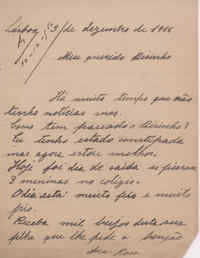 Lisboa 3/ de dezembro de 19
Meu querido Dirinho
Há muito tempo que não
tenho noticias suas.
Como tem passado o Dirinho?
Eu tenho estado constipada
mas agora estou melhor.
Hoje foi dia de saida e fizeram
3 meninas no colégio.
O dia está muito frio e muito
frio.
Receba mil beijos desta sua
filha que lhe pede a benção